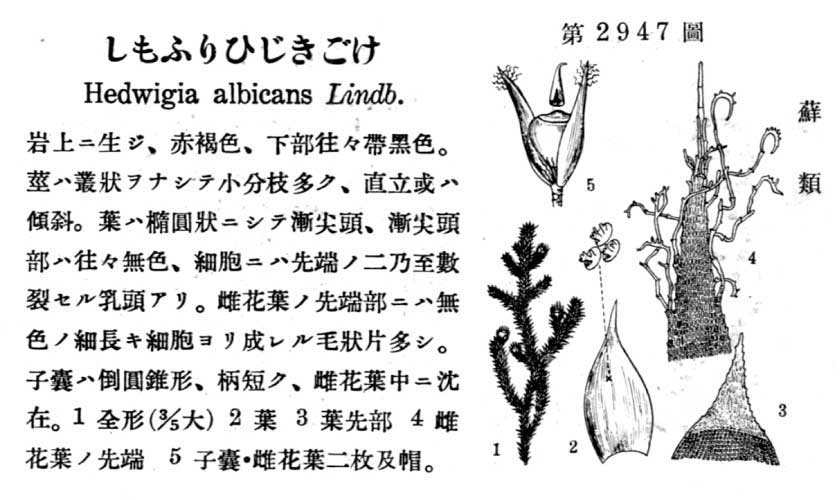 しもふりひじきごけ
Hedwigia albicans Lindb.
岩上ニ生ジ、赤褐色、下部往々帶黑色。
莖ハ叢狀ヲナシテ小分枝多ク、直立或ハ
傾斜。葉ハ橢圓狀ニシテ漸尖頭、漸尖頭
部ハ往々無色、細胞ニハ先端ノ二乃至數
裂セル乳頭アリ。雌花葉ノ先端部ニハ無
色ノ細長キ細胞ヨリ成レル毛狀片多シ。
子囊ハ倒圓錐形、柄短ク、雌花葉中ニ沈
在。1 全形(3/5大) 2 葉 3 葉先部 4 雌
花葉ノ先端 5 子囊・雌花葉二枚及帽。
第 2947 圖
蘚類
5
4
3
1
2